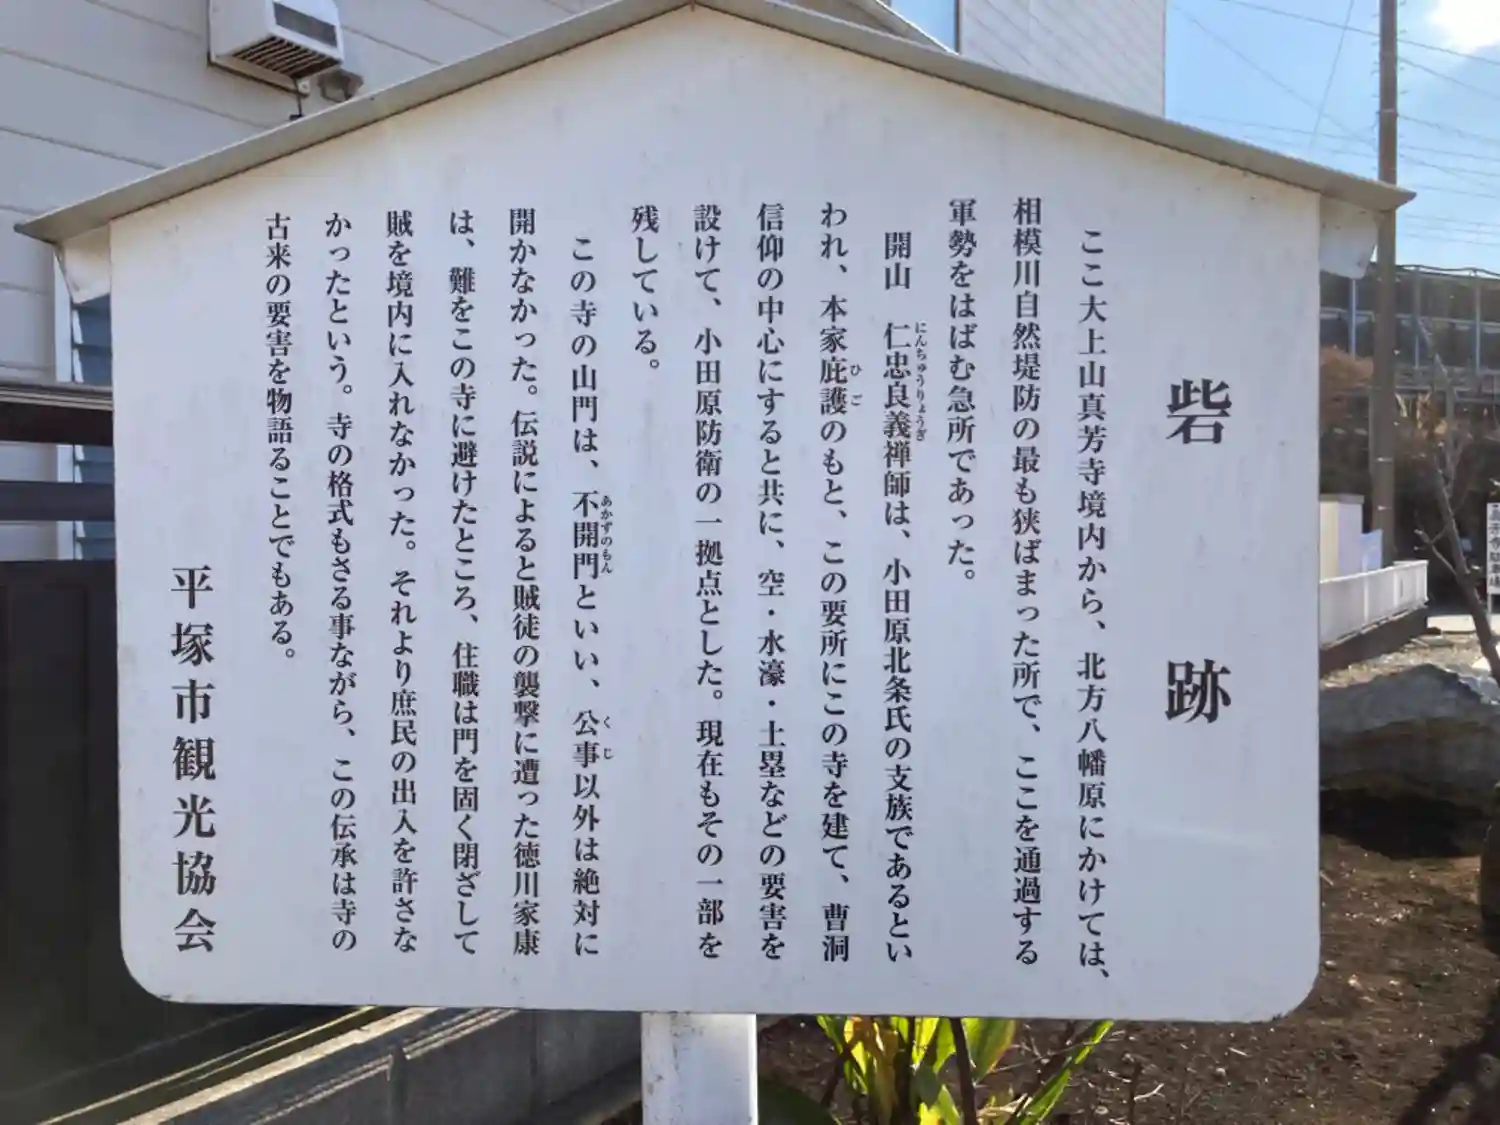 砦跡
ここ大上山真芳寺境内から、北方八幡原にかけては、
相模川自然堤防の最も狭ばまった所で、ここを通過する
軍勢をはばむ急所であった。
開山　仁忠良義禅師は、小田原北条氏の支族であるとい
にんちゅうりょうぎ
われ、本家庇護のもと、この要所にこの寺を建て、曹洞
ひご
信仰の中心にすると共に、空・水濠・土塁などの要害を
設けて、小田原防衛の一拠点とした。現在もその一部を
残している。
この寺の山門は、不開門といい、公事以外は絶対に
あかずのもん
くじ
開かなかった。伝説によると賊徒の襲撃に遭った徳川家康
は、難をこの寺に避けたところ、住職は門を固く閉ざして
賊を境内に入れなかった。それより庶民の出入を許さな
かったという。寺の格式もさる事ながら、この伝承は寺の
古来の要害を物語ることでもある。
平塚市観光協会